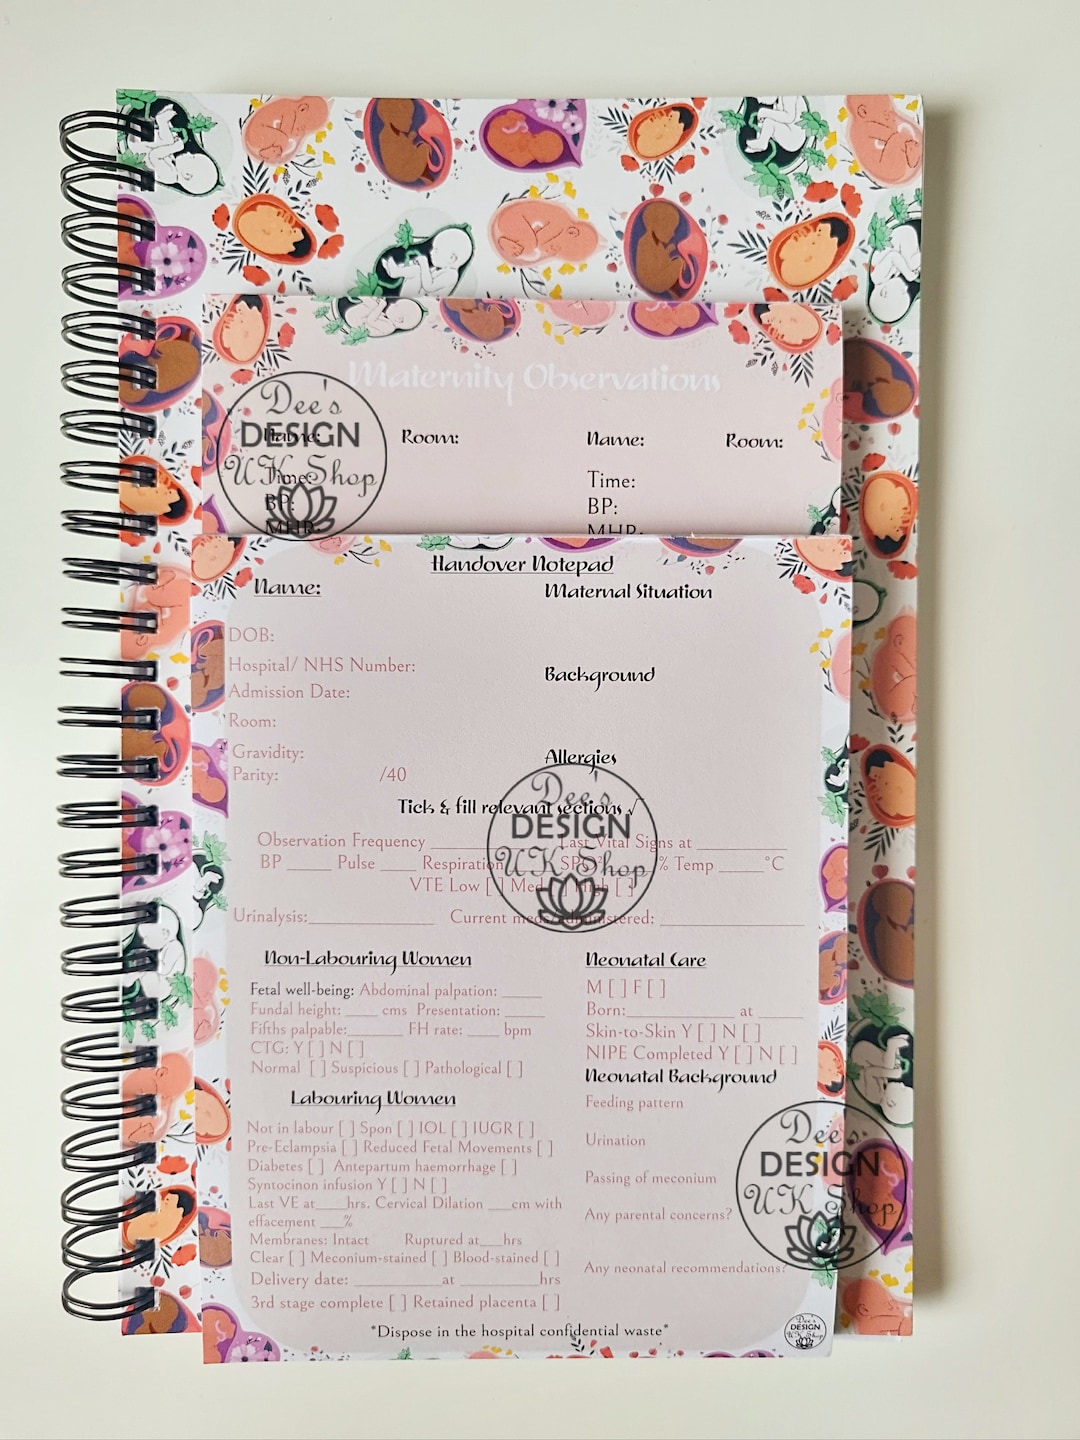 Maternity Observations
Dee's
DESIGN
UK Shop
Name: Room: Name: Room:
Time: Time:
BP: BP:
MHR: MHR:
Handover Notepad
Name: Maternal Situation
DOB:
Hospital/ NHS Number:
Background
Admission Date:
Room:
Gravidity:
Allergies
Parity: /40
Dee's
DESIGN
UK Shop
Tick & fill relevant sections √
Observation Frequency ______ Last Vital Signs at ______
BP _____ Pulse ____ Respiration SPO² % Temp _____°C
VTE Low [ ] Med High [ ]
Urinalysis:______ Current meds administered: ______
Non-Labouring Women
Fetal well-being: Abdominal palpation: _____
Fundal height: ____ cms Presentation: _____
Fifths palpable:______ FH rate: ____ bpm
CTG: Y [ ] N [ ]
Normal [ ] Suspicious [ ] Pathological [ ]
Labouring Women
Not in labour [ ] Spon [ ] IOL [ ] IUGR [ ]
Pre-Eclampsia [ ] Reduced Fetal Movements [ ]
Diabetes [ ] Antepartum haemorrhage [ ]
Syntocinon infusion Y [ ] N [ ]
Last VE at____hrs. Cervical Dilation ___cm with
effacement ___%
Membranes: Intact Ruptured at___hrs
Clear [ ] Meconium-stained [ ] Blood-stained [ ]
Delivery date: ___________at __________hrs
3rd stage complete [ ] Retained placenta [ ]
Neonatal Care
M [ ] F [ ]
Born:____________ at _____
Skin-to-Skin Y [ ] N [ ]
NIPE Completed Y [ ] N [ ]
Neonatal Background
Feeding pattern
Urination
Passing of meconium
Any parental concerns?
Any neonatal recommendations?
Dee's
DESIGN
UK Shop
*Dispose in the hospital confidential waste*
Dee's
DESIGN
UK Shop